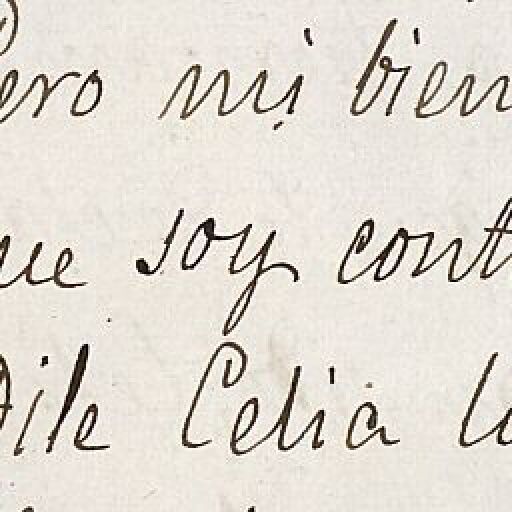 Pero mi bien
que soy cont
Dile Celia lo